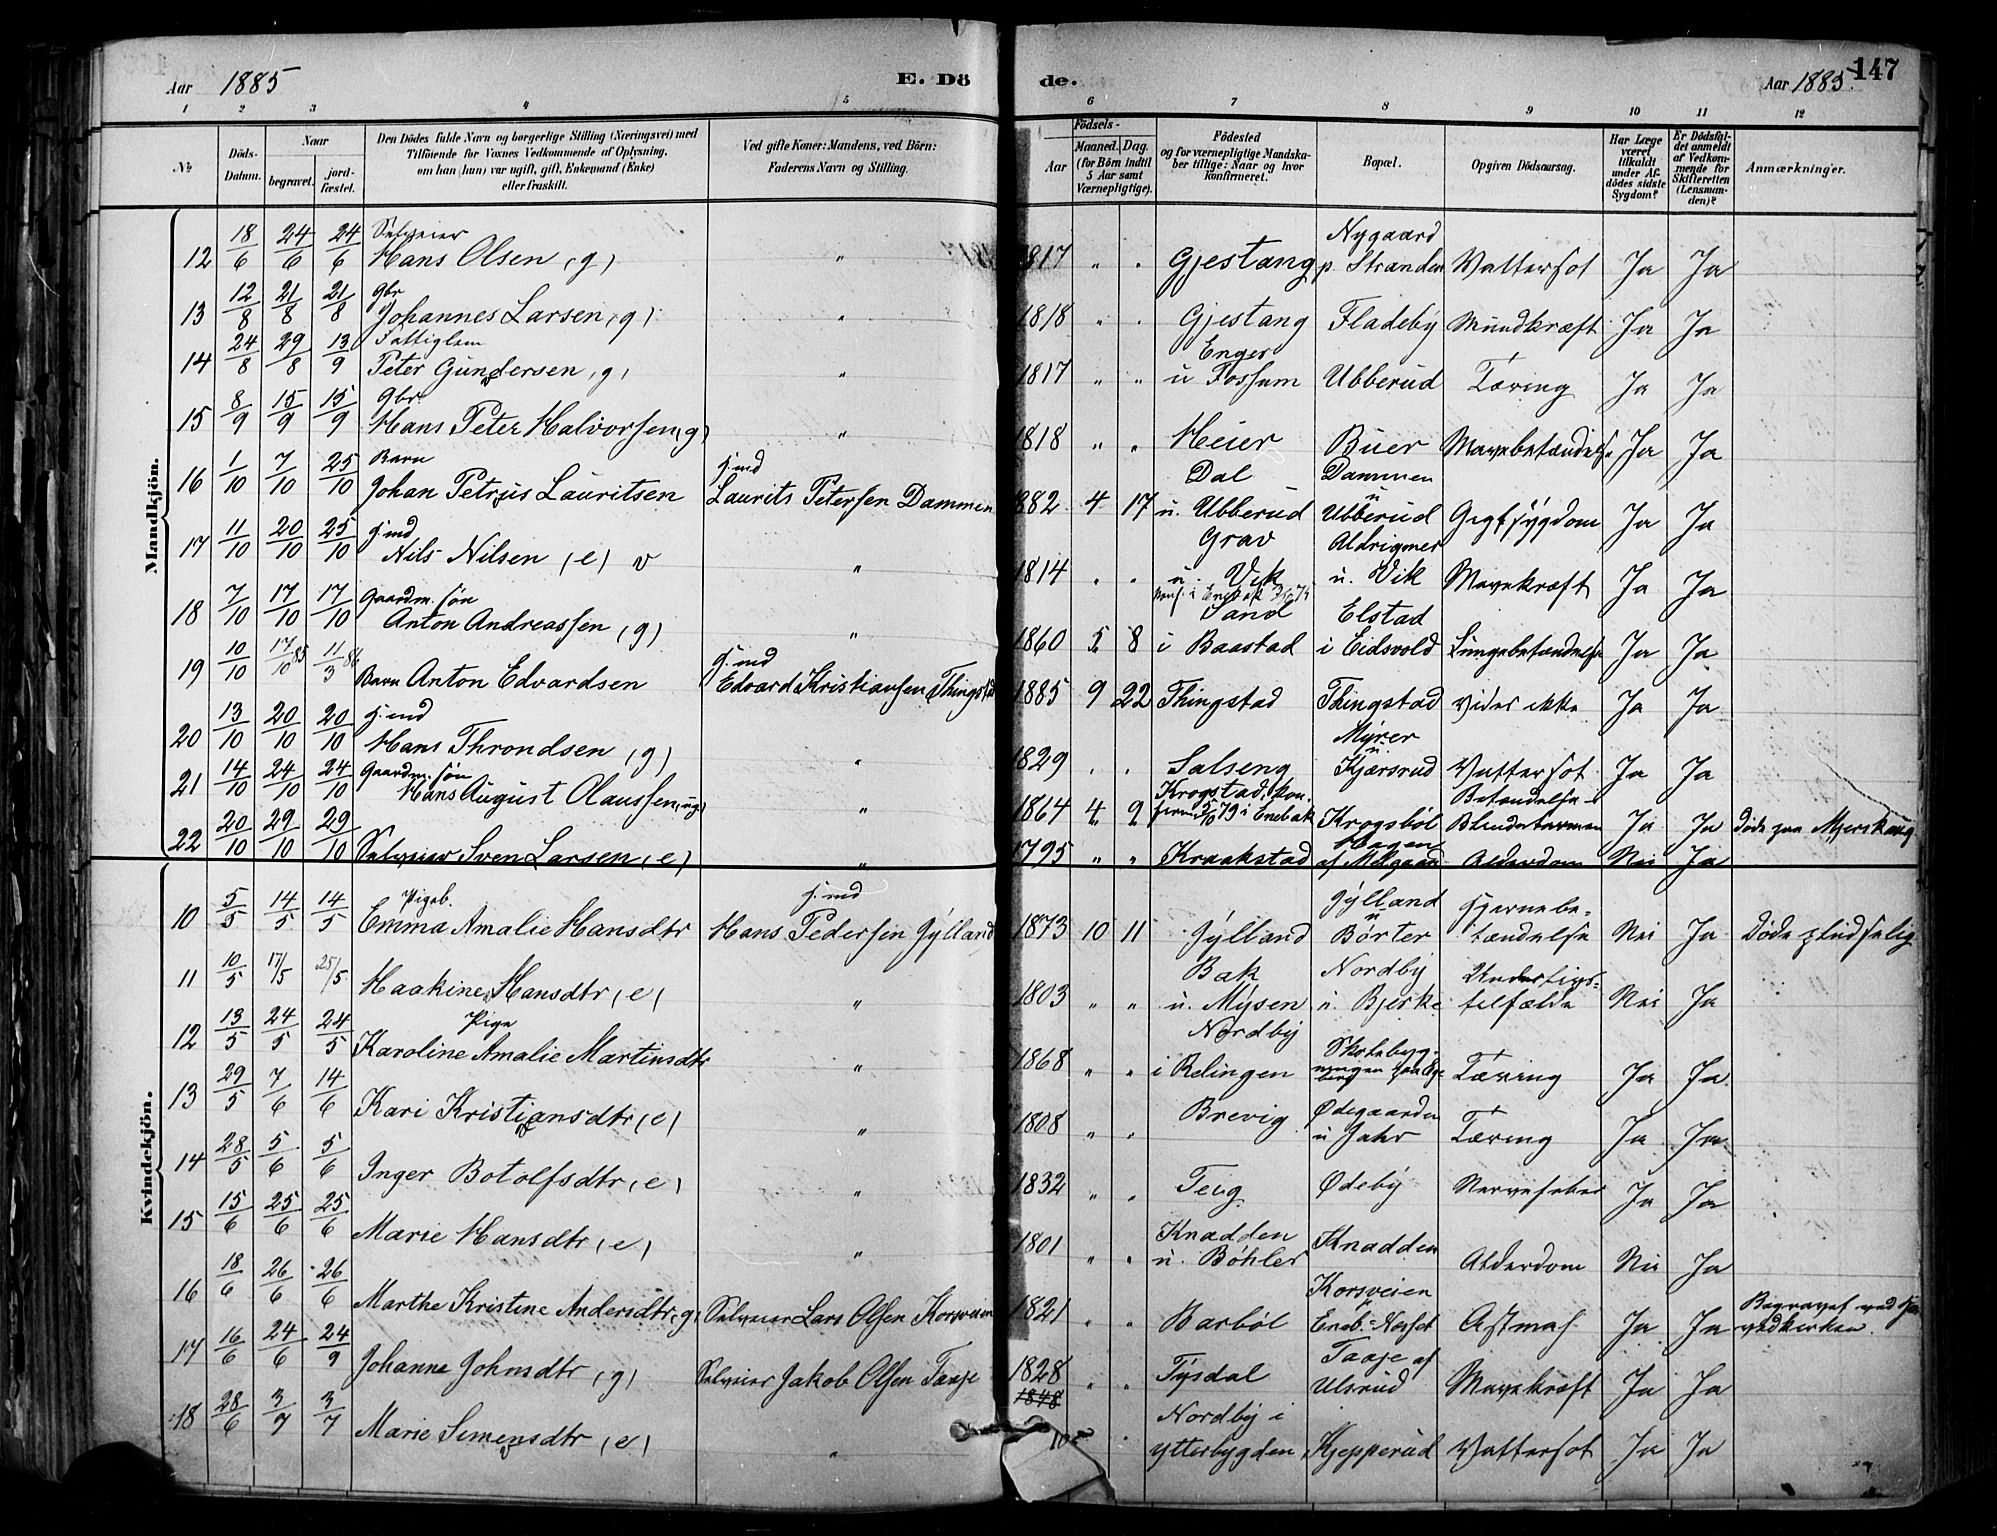 Aar 1885 E. Döde. Aar 1885. 147
1 2 3 4 5 6 7 8 9 10 11 12
№ Döds-Datum. Naar begravet. jord-fæstet. Den Dödes fulde Navn og borgerlige Stilling (Næringsvei) med Tilföiende for Voxnes Vedkommende af Oplysning, om han (hun) var ugift, gift, Enkemand (Enke) eller fraskilt. Ved gifte Koner: Mandens, ved Börn: Faderens Navn og Stilling. Födsels- Aar Maaned. Dag. (for Börn indtil 5 Aar samt Værnepligtige). Födested og for værnepligtige Mandskaber tillige: Naar og hvor konfirmeret. Bopæl. Opgiven Dödsaarsag. Har Læge været tilkaldt under Afdödes sidste Sygdom? Er Dödsfaldet anmeldt af Vedkommende for Skifteretten (Lensmanden)? Anmærkninger.
Mandkjön.
12 18/6 24/6 24/6 Selveier Hans Olsen (g) " 1817 " " Gjestang Nygaard p Stranden Vattersot Ja Ja
13 12/8 21/8 21/8 Gbr Johannes Larsen (g) " 1818 " " Gjestang Fladeby Mundkræft Ja Ja
14 24/8 29/8 13/9 Fattiglem Peter Gundersen (g) " 1817 " " Enger u Fossum Ubberud Tæring Ja Ja
15 8/9 15/9 15/9 Gbr Hans Peter Halvorsen (g) " 1818 " " Heier Buer Mavebetændelse Ja Ja
16 1/10 7/10 25/10 Barn Johan Petrus Lauritsen Hmd Laurits Petersen Dammen 1882 4 17 Dal u. Ubberud Dammen u Ubberud Gigtsygdom Ja Ja
17 11/10 20/10 25/10 Hmd Nils Nilsen (e) " 1814 " " Grav u. Vik Aldrigmer u. Vik Mavekræft Ja Ja
18 7/10 17/10 17/10 Gaardm. søn Anton Andreassen (g) " 1860 5 8 Sand i Baastad Elstad i Eidsvold Lungebetændelse Ja Ja
19 10/10 17/10 85 11/3 86 Barn Anton Edvardsen Hmd Edvard Kristiansen Thingstad 1885 9 22 Thingstad Thingstad vides ikke Ja Ja
20 13/10 20/10 20/10 Hmd Hans Throndsen (g) " 1829 " " Salseng Myrer u. Kjærsrud Vattersot Ja Ja
21 14/10 24/10 24/10 Gaardm. søn Hans August Olaussen (ug) " 1864 4 9 Krogstad, konfirm. 5/10 79 i Enebak Krogsböl Betændelse Blindetarmen Ja Ja Döde paa Mjerskaug
22 20/10 29/10 29/10 Selveier Sven Larsen (e) " 1795 " " Kraakstad Hagen af Melgaard Alderdom Nei Ja
Kvindekjön.
10 5/5 14/5 14/5 Pigeb. Emma Amalie Hansdtr Hmd Hans Pedersen Jylland 1873 10 11 Jylland Jylland u Börter Hjernebetændelse Nei Ja Döde pludselig
11 10/5 17/5 25/5 Haakine Hansdtr (e) " 1803 " " Bak u. Mysen Nordby u. Bjerke Underlivstilfælde Nei Ja
12 13/5 24/5 24/5 Pige Karoline Amalie Martinsdtr " 1868 " " Nordby i Relingen Skolebygningen paa Ekeberg Tæring Ja Ja
13 29/5 7/6 14/6 Kari Kristiansdtr (e) " 1808 " " Brevig Ødegaarden u Jahr Tæring Ja Ja
14 28/5 5/6 5/6 Inger Botolfsdtr (e) " 1832 " " Teig Ødeby Nervefeber Ja Ja
15 15/6 25/6 25/6 Marie Hansdtr (e) " 1801 " " Knadden u. Böhler Knadden Alderdom Nei Ja
16 18/6 26/6 26/6 Marthe Kristine Andersdtr (g) Selveier Lars Olsen Korsveien 1821 " " Barböl Korsveien Eneb.-Næset Astmas Ja Ja Begravet ved vedkirken.
17 16/6 24/6 24/9 Johanne Johnsdtr (g) Selveier Jakob Olsen Taaje 1828 1848 " " Tysdal Taaje af Ulsrud Mavekræft Ja Ja
18 28/6 3/7 3/7 Marie Simensdtr (e) " Nordby i ytterbygden Kjepperud Vattersot Ja Ja